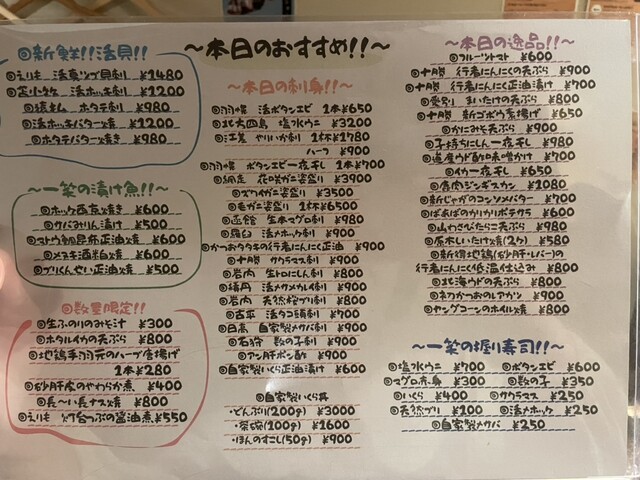 ◎新鮮!!活貝!!
◎えりも 活真ツブ貝刺 ¥1480
◎苫小牧 活ホッキ刺 ¥1200
◎猿払 ホタテ刺 ¥980
◎活ホッキバター焼 ¥1200
◎ホタテバター焼き ¥980
〜一笑の漬け魚!!〜
◎ホッケ西京焼き ¥600
◎サバみりん漬け ¥500
◎正油焼 ¥600
◎メヌキ酒粕焼 ¥600
◎ブリくんせい正油焼 ¥500
◎数量限定!!
◎生ふのりのみそ汁 ¥300
◎ホタルイカの天ぷら ¥800
◎地鶏手羽元のハーブ唐揚げ
1本¥280
◎砂肝皮のやわらか煮 ¥400
◎長〜い長ナス焼 ¥800
◎えりも 灯台つぶの醤油煮 ¥550
〜本日のおすすめ!!〜
〜本日の刺身!!〜
◎羽幌 活ボタンエビ 1本¥650
◎北方四島 塩水ウニ ¥3200
◎江差 やりいか刺 1杯¥1780
ハーフ ¥900
◎羽幌 ボタンエビ一夜干し 1本¥700
◎網走 花咲ガニ姿盛り ¥3900
◎ズワイガニ姿盛り ¥3500
◎毛ガニ姿盛り 1杯¥6500
◎函館 生本マグロ刺 ¥980
◎羅臼 活メホッケ刺 ¥900
◎かつおタタキの行者にんにく正油 ¥900
◎十勝 サクラマス刺 ¥900
◎岩内 生トロにしん刺 ¥800
◎積丹 活メダカカレイ刺 ¥900
◎岩内 活天然桜ブリ刺 ¥800
◎古平 活タコ頭刺 ¥700
◎日高 自家製〆サバ刺 ¥900
◎石狩 数の子刺 ¥900
◎アン肝ポン酢 ¥900
◎自家製いくら正油漬 ¥600
◎自家製いくら丼
・どんぶり(200g) ¥3000
・茶碗(100g) ¥1600
・ほんのすこし(50g) ¥900
〜本日の逸品!!〜
◎フルーツトマト ¥600
◎十勝 行者にんにくの天ぷら ¥900
◎十勝 行者にんにく正油漬け ¥700
◎愛別 まいたけの天ぷら ¥800
◎十勝 新ゴボウ素揚げ ¥650
◎かにみそ天ぷら ¥900
◎子持ちにしん一夜干し ¥980
◎道産ウド酢味噌かけ ¥700
◎イカ一夜干し ¥650
◎鹿肉ジンギスカン ¥1080
◎新じゃがのコンソメバター ¥700
◎ばあばのかりかりポテサラ ¥600
◎山わさびたこ天ぷら ¥980
◎原木しいたけ焼(2ケ) ¥580
◎新得地鶏(砂肝・レバー)の
行者にんにく低温仕込み ¥800
◎北海ウドの天ぷら ¥800
◎初カツオのレアカツ ¥900
◎ヤングコーンのホイル焼 ¥800
〜一笑の握り寿司!!〜
◎塩水ウニ ¥700 ◎ボタンエビ ¥600
◎マグロ赤身 ¥300 ◎数の子 ¥350
◎いくら ¥400 ◎サクラマス ¥250
◎天然ブリ ¥200 ◎活メホッケ ¥250
◎自家製〆サバ ¥250